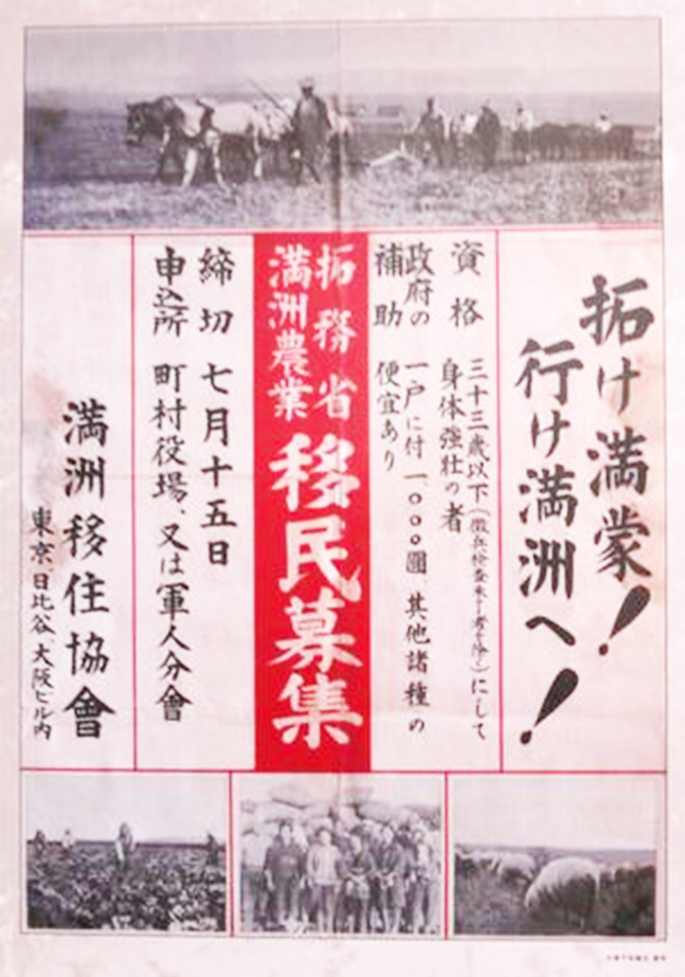 拓け満蒙！
行け満洲へ！
資格 三十三歳以下（徴兵検査未了者を除く）にして
身体強壮の者
政府の補助 一戸に付一、〇〇〇圓、其他諸種の
便宜あり
拓務省
満洲農業
移民募集
締切 七月十五日
申込所 町村役場、又は軍人分會
満洲移住協會
東京、日比谷、大阪ビル内